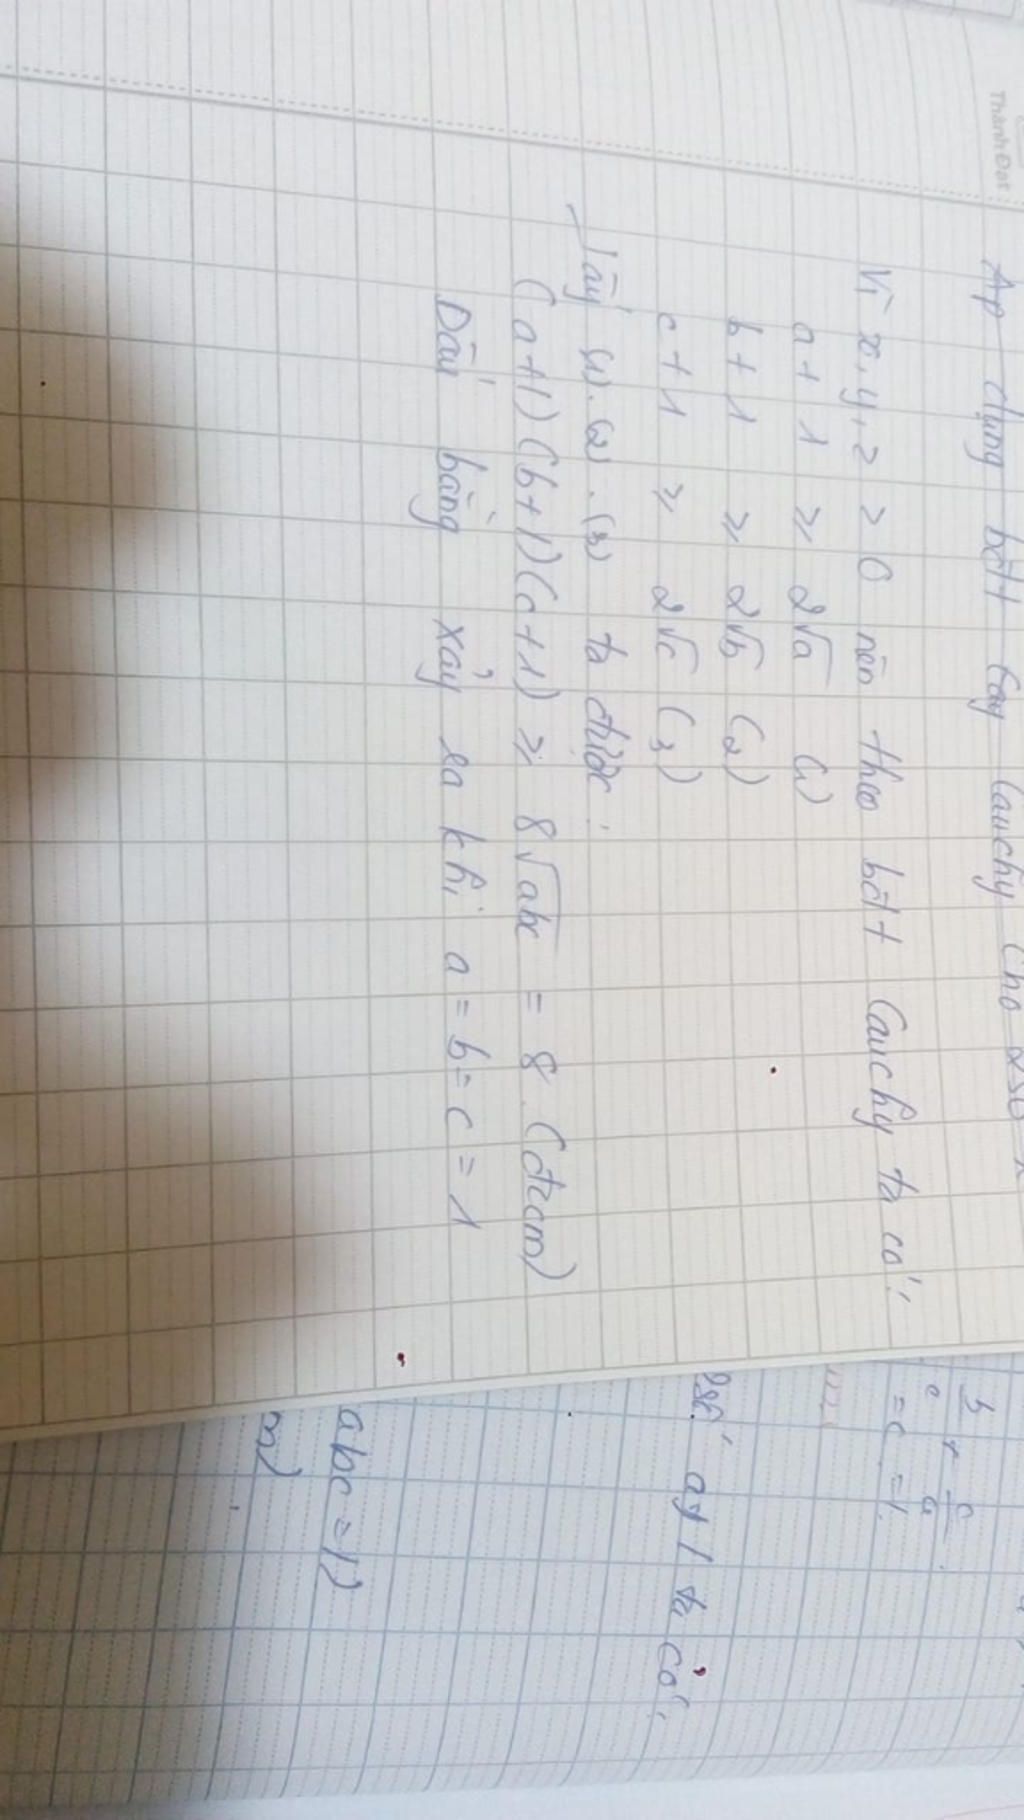 Thành Đạt
Áp dụng bđt Cauchy cho 2 số
Vì x, y, z > 0 nên theo bđt Cauchy ta có:
a + 1 ≥ 2√a (1)
b + 1 ≥ 2√b (2)
c + 1 ≥ 2√c (3)
Lấy (1). (2). (3) ta được:
(a+1)(b+1)(c+1) ≥ 8√abc = 8 (đpcm)
Dấu bằng xảy ra khi a = b = c = 1
b/c + c/a
= c = 1
2 số a, 1 ta có:
abc = 1)
m)